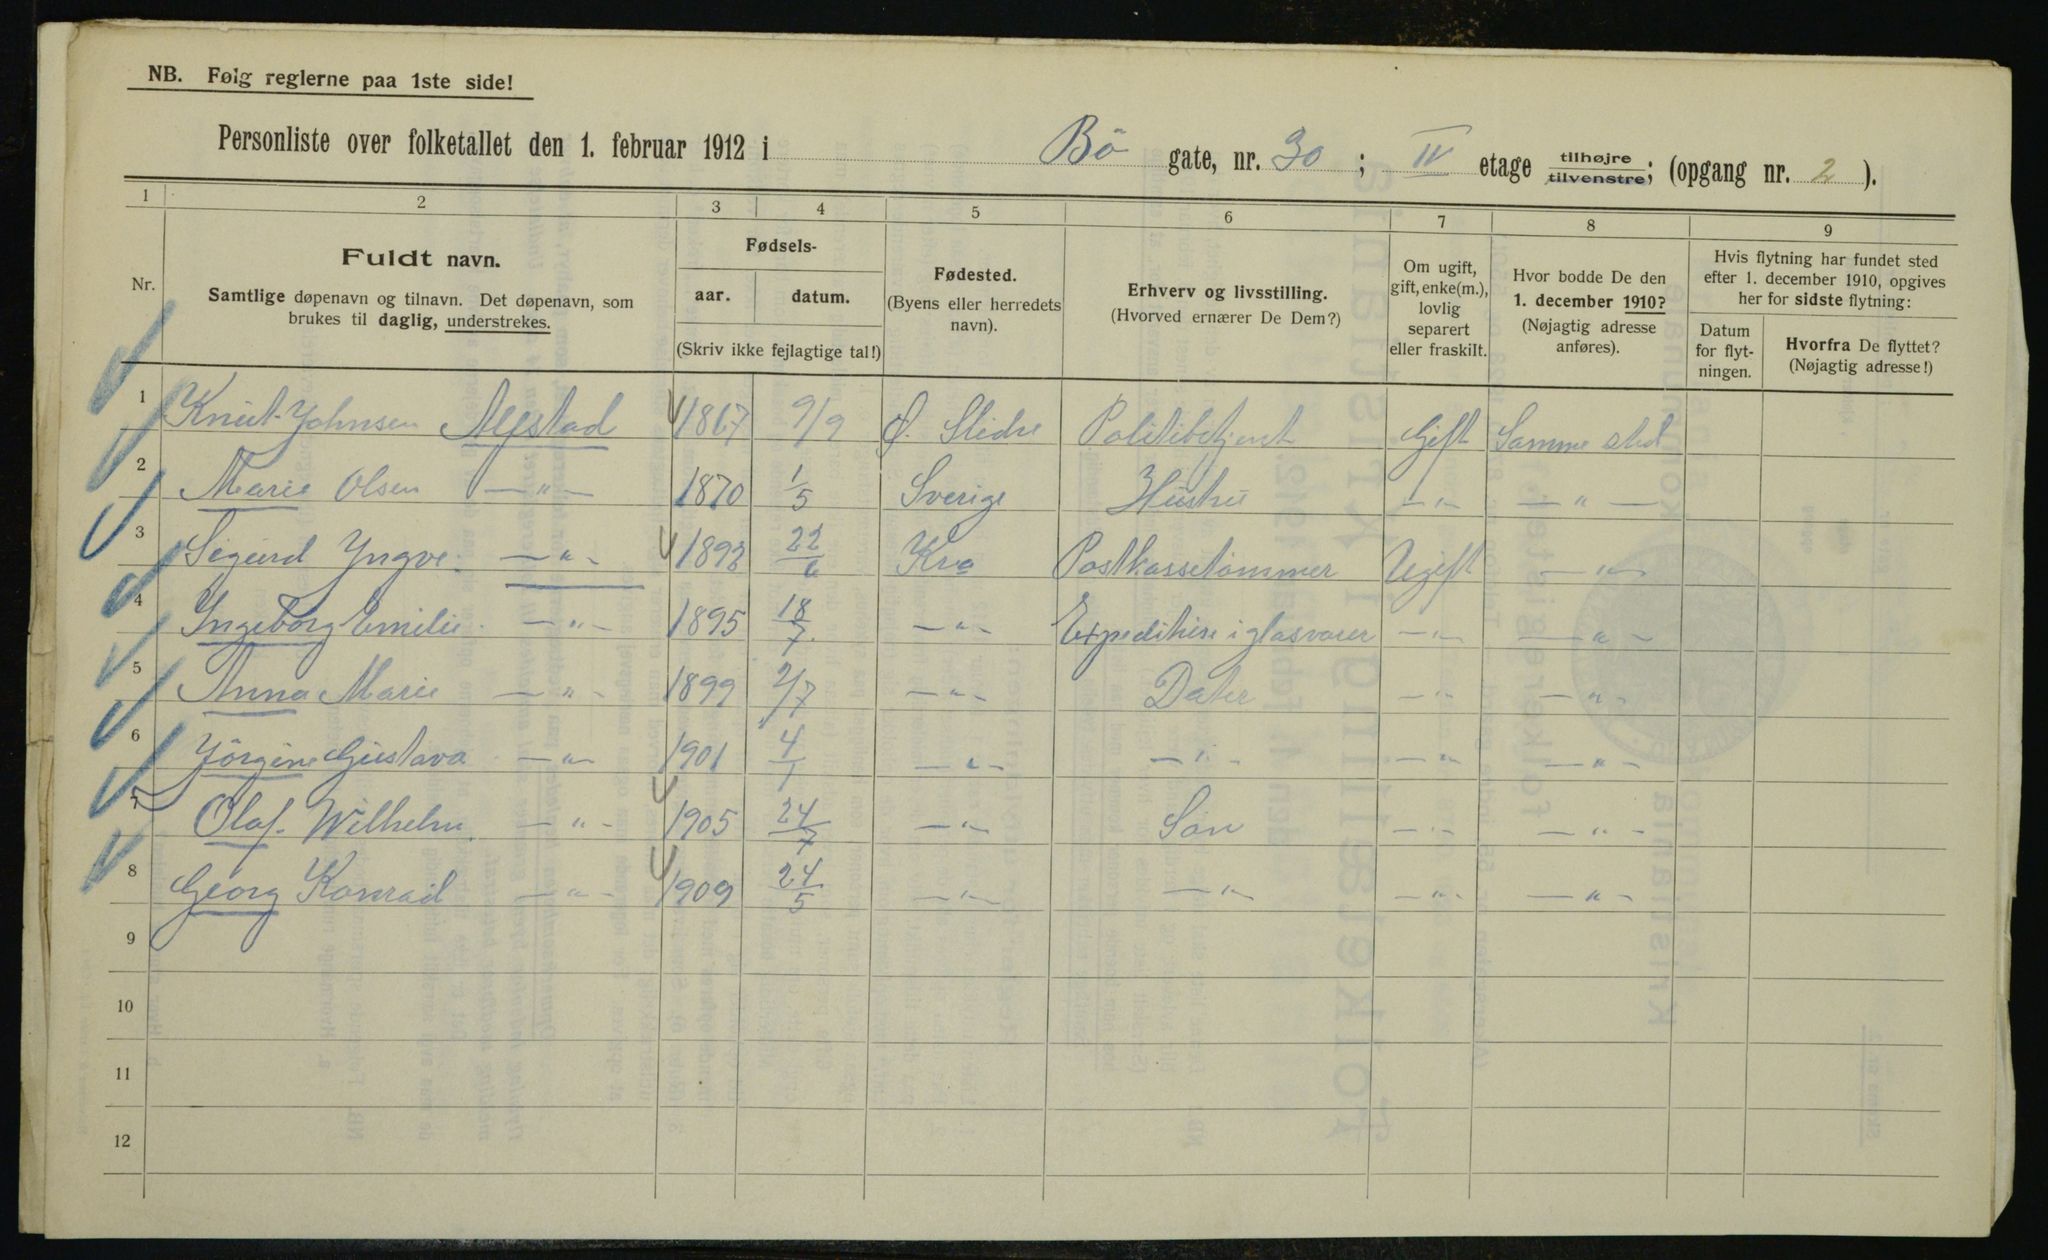 NB. Følg reglerne paa 1ste side!
Personliste over folketallet den 1. februar 1912 i Bö gate, nr. 30 ; IV etage tilhøjre tilvenstre; (opgang nr. 2 ).
1 2 3 4 5 6 7 8 9
Nr.
Fuldt navn.
Samtlige døpenavn og tilnavn. Det døpenavn, som
brukes til daglig, understrekes.
Fødsels-
aar. datum.
(Skriv ikke fejlagtige tal!)
Fødested.
(Byens eller herredets
navn).
Erhverv og livsstilling.
(Hvorved ernærer De Dem?)
Om ugift,
gift, enke(m.),
lovlig
separert
eller fraskilt.
Hvor bodde De den
1. december 1910?
(Nøjagtig adresse
anføres).
Hvis flytning har fundet sted
efter 1. december 1910, opgives
her for sidste flytning:
Datum
for flyt-
ningen.
Hvorfra De flyttet?
(Nøjagtig adresse!)
1 Knut Johnsen 1867 9/9 Ø. Slidre Politibetjent Gift Samme sted
2 Marie Olsen — " — 1870 1/5 Sverige Hustru — " — — " —
3 Sigurd Yngve. — " — 1893 22/6 Kra Postkassetömmer Ugift — " —
4 Ingeborg Emilie. — " — 1895 18/7 — " — Expeditrise i glasvarer — " — — " —
5 Anna Marie — " — 1899 2/7 — " — Dater — " — — " —
6 Jörgine Gustava — " — 1901 4/1 — " — — " — — " — — " —
7 Olaf Wilhelm. — " — 1905 24/7 — " — Sön — " — — " —
8 Georg Konrad — " — 1909 24/5 — " — — " — — " — — " —
9
10
11
12